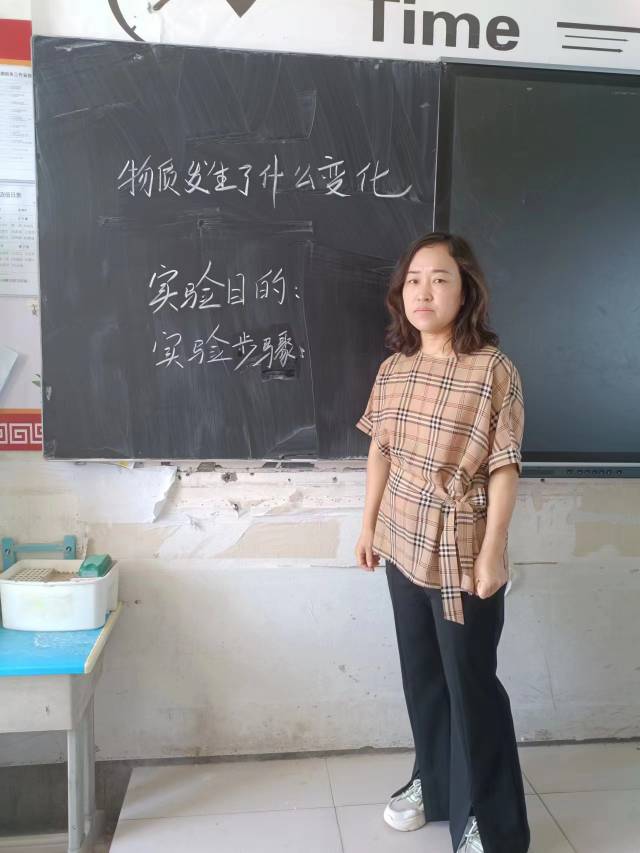 Time
物质发生了什么变化
实验目的：
实验步骤：